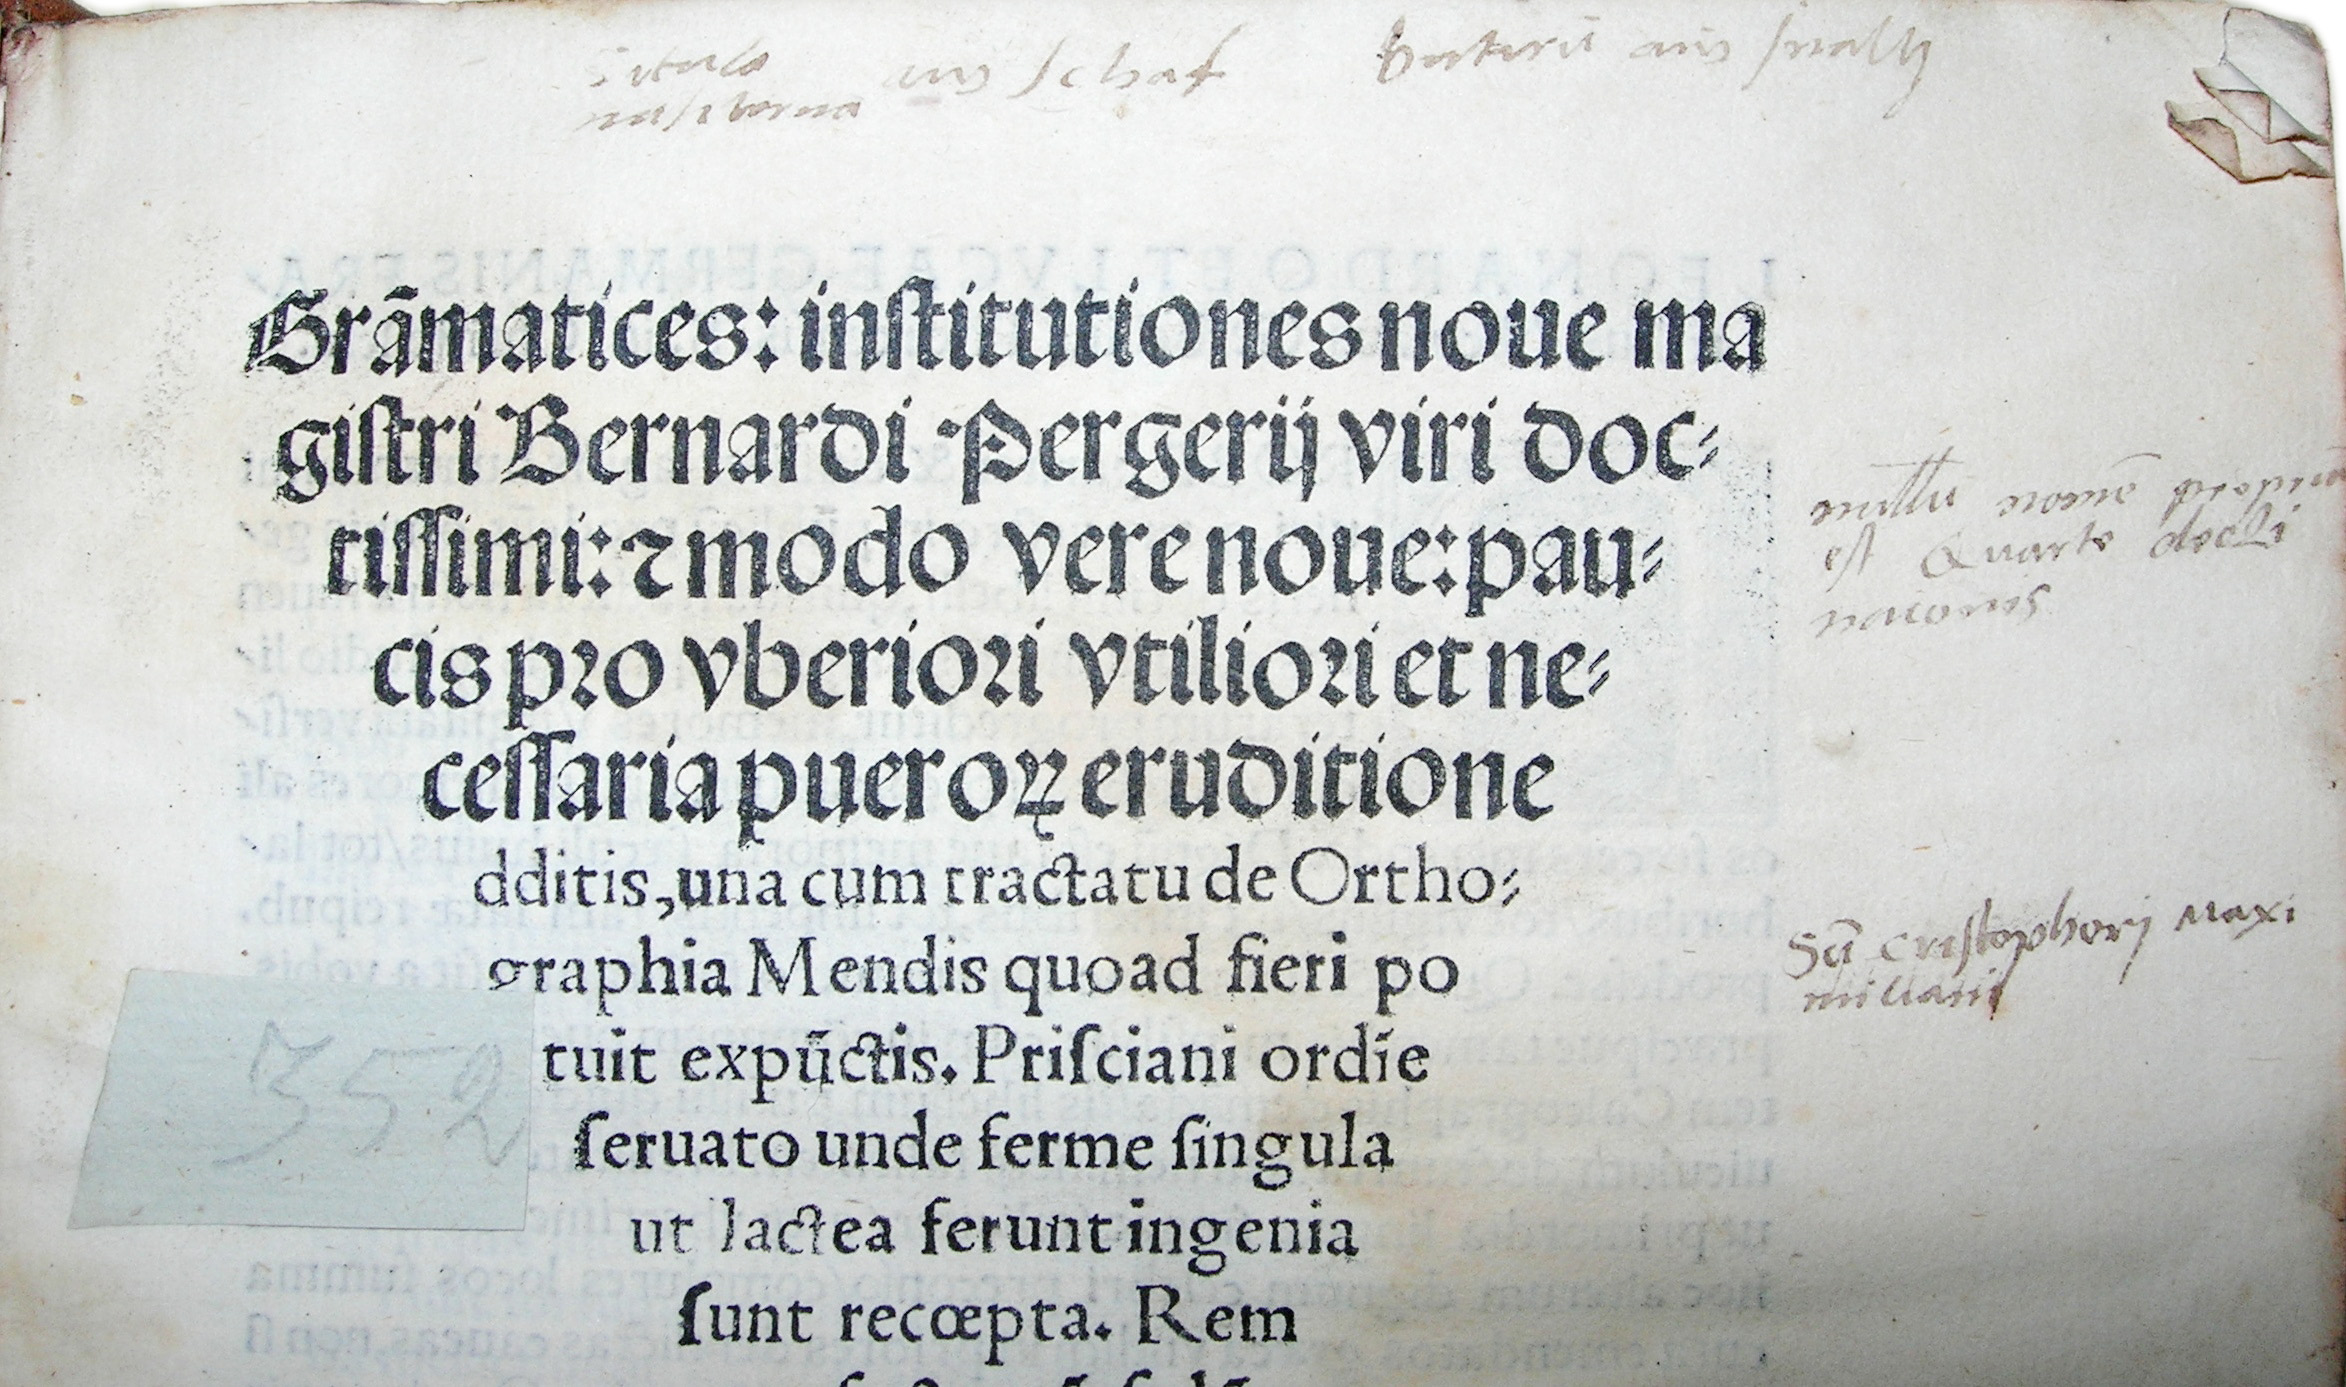 aus schaf
aus
Grãmatices: inſtitutiones noue ma
giſtri Bernardi Pergerij viri doc⸗
tiſſimi: ⁊ modo vere noue: pau⸗
cis pꝛo vberioꝛi vtilioꝛi et ne⸗
ceſſaria pueroꝝ eruditione
dditis, una cum tractatu de Ortho⸗
graphia Mendis quoad fieri po
tuit expūctis. Priſciani ordīe
ſeruato unde ferme ſingula
ut lactea ferunt ingenia
ſunt recœpta. Rem
nullū nomē
eſt Quarte decli
nacionis
Sū Criſtophorj Maxi
miliani
352